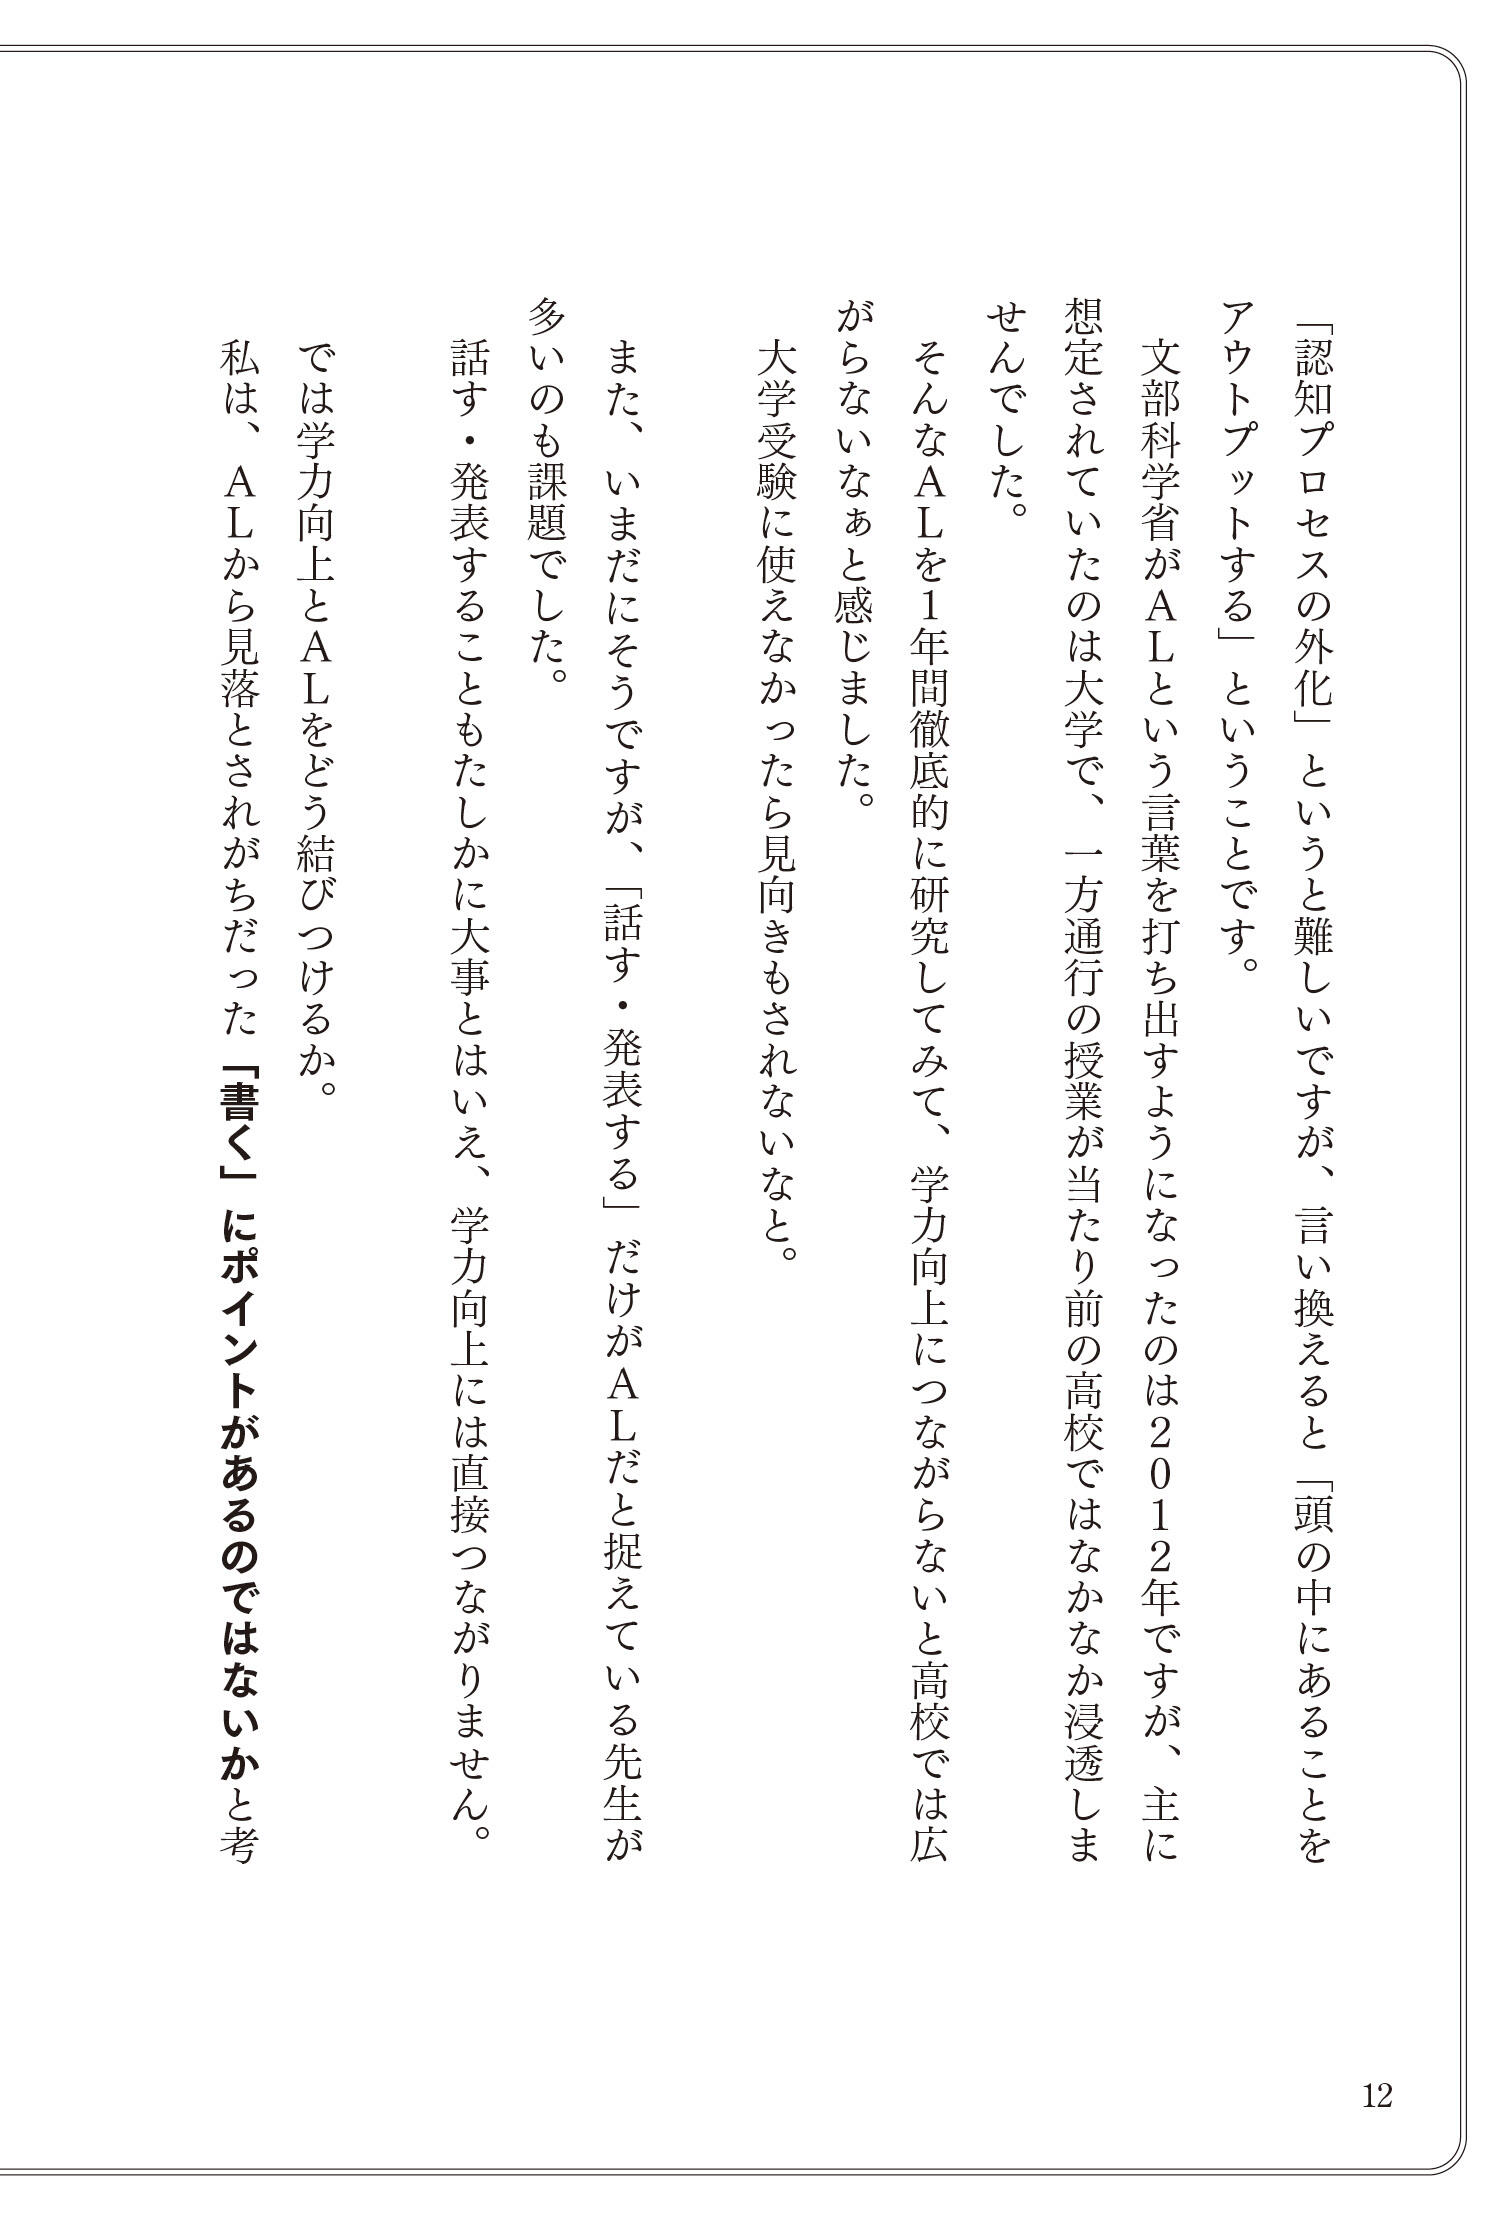 「認知プロセスの外化」というと難しいですが、言い換えると「頭の中にあることを
アウトプットする」ということです。
文部科学省がＡＬという言葉を打ち出すようになったのは２０１２年ですが、主に
想定されていたのは大学で、一方通行の授業が当たり前の高校ではなかなか浸透しま
せんでした。
そんなＡＬを１年間徹底的に研究してみて、学力向上につながらないと高校では広
がらないなぁと感じました。
大学受験に使えなかったら見向きもされないなと。
また、いまだにそうですが、「話す・発表する」だけがＡＬだと捉えている先生が
多いのも課題でした。
話す・発表することもたしかに大事とはいえ、学力向上には直接つながりません。
では学力向上とＡＬをどう結びつけるか。
私は、ＡＬから見落とされがちだった「書く」にポイントがあるのではないかと考
12